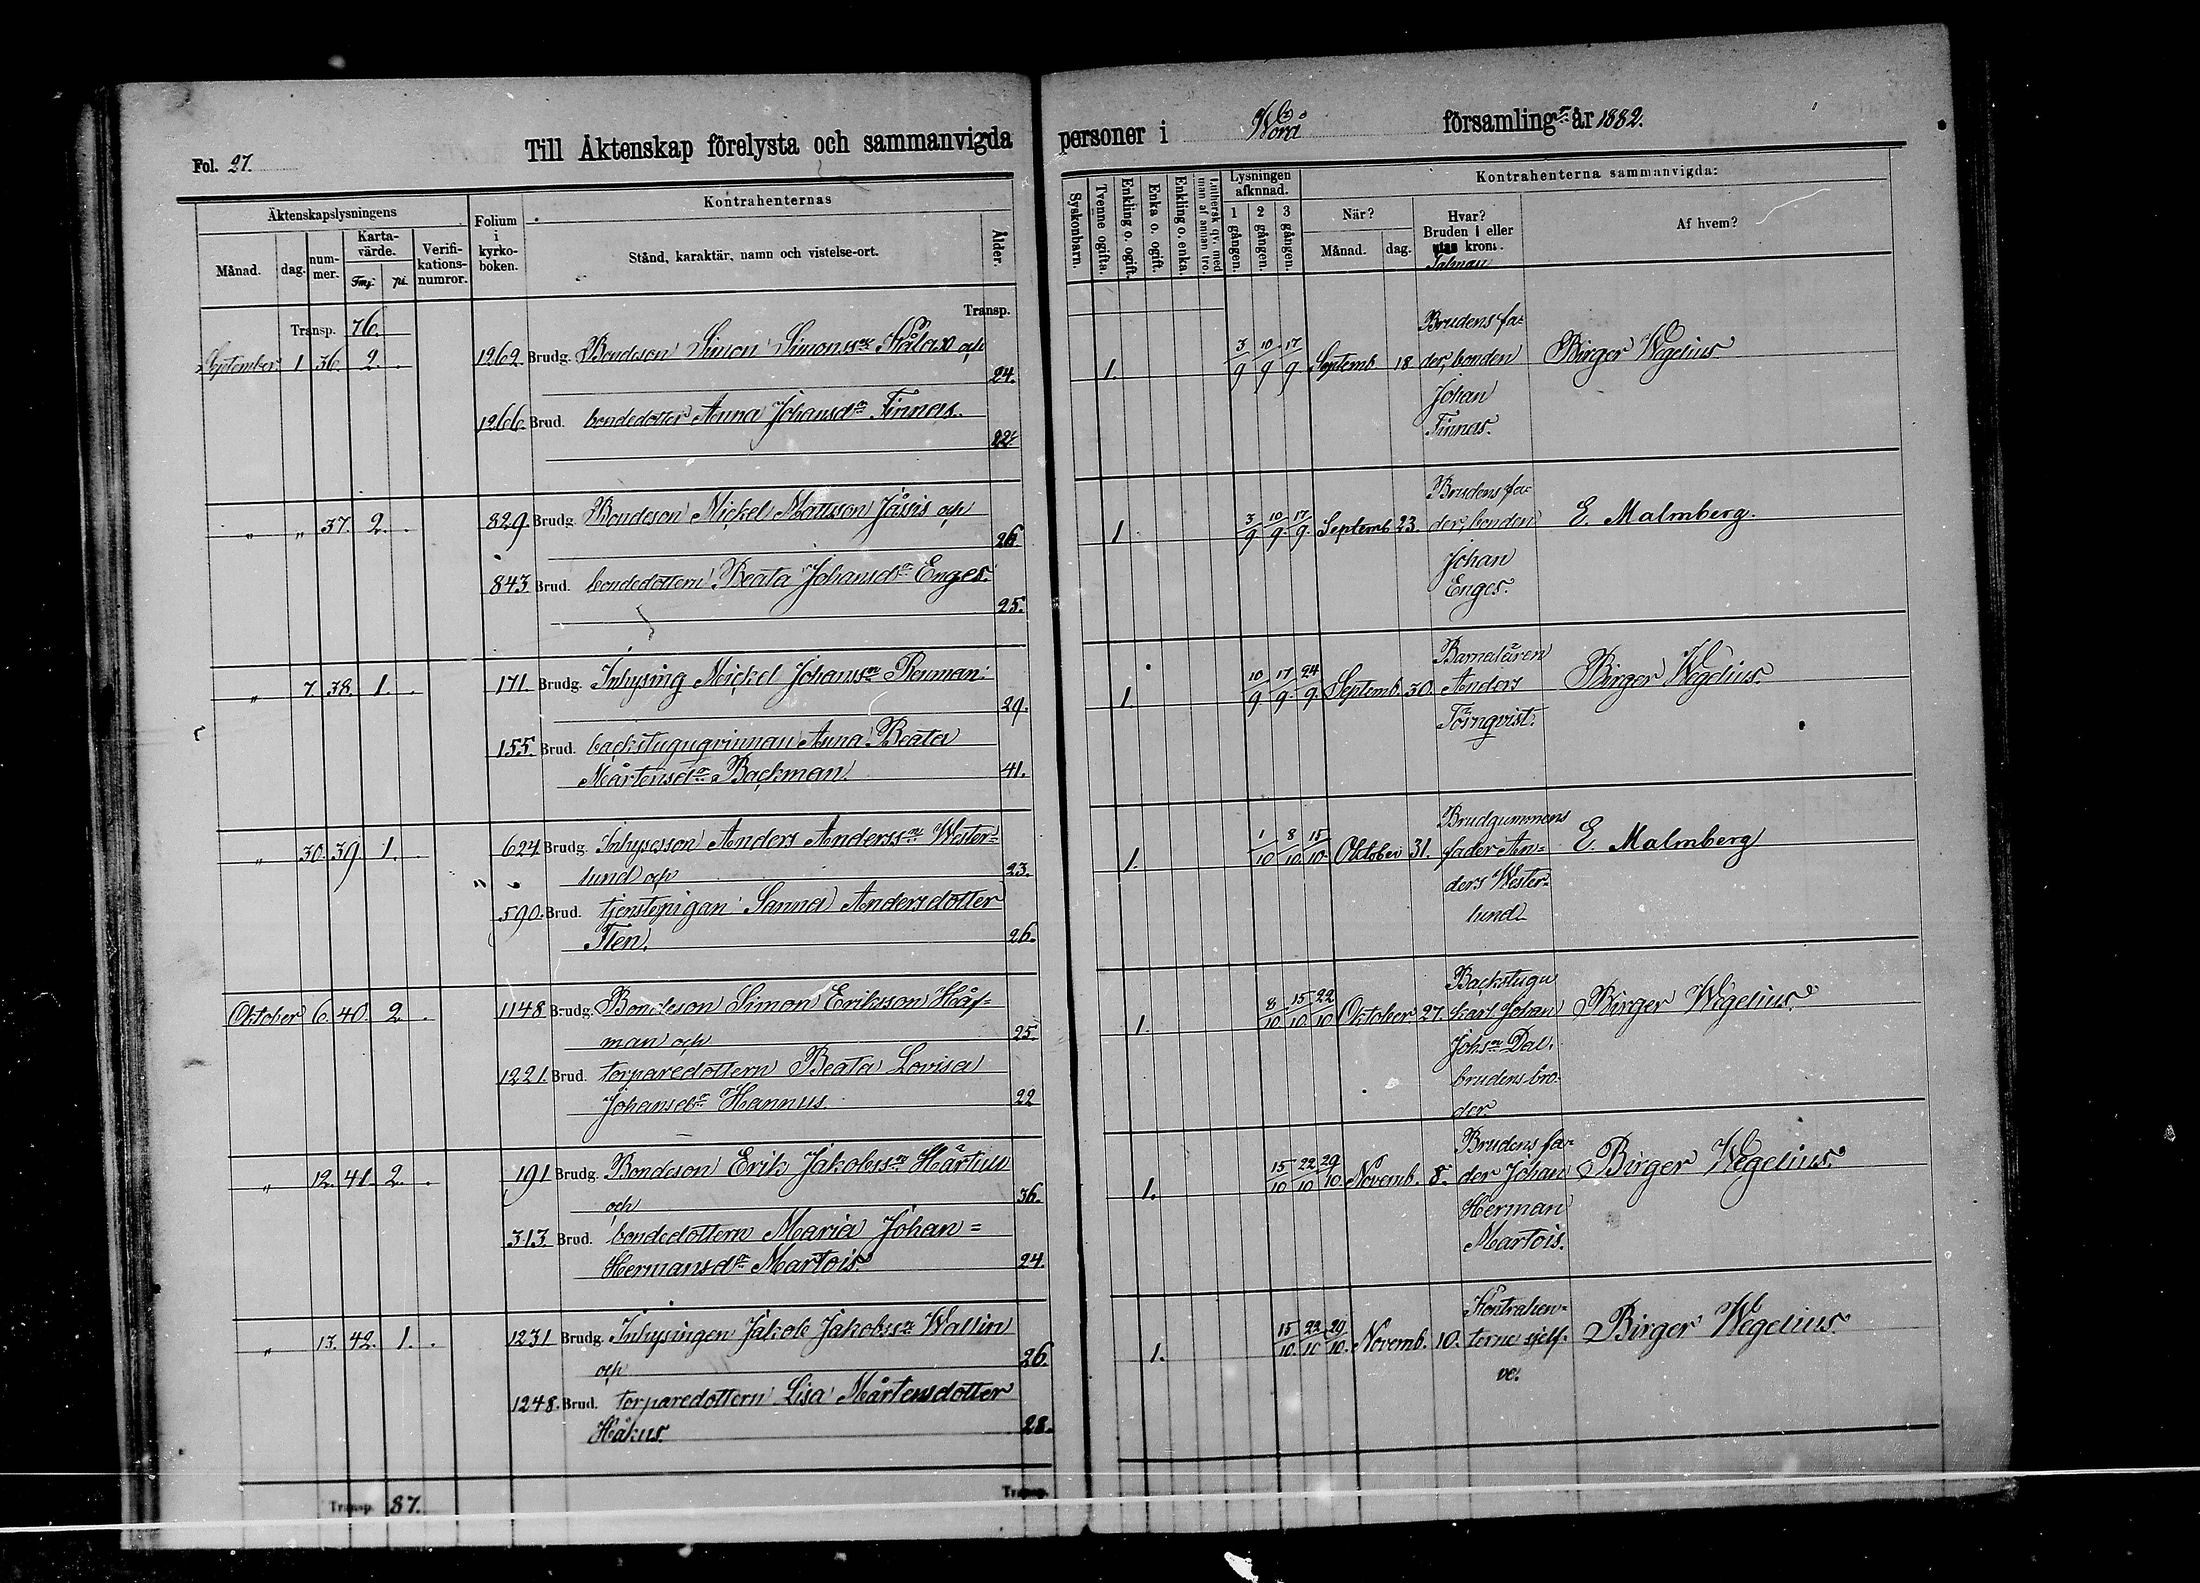 Till Äktenskap förelysta och sammanvigda personer i Wörå församling år 1882.
Fol. 27.
Äktenskapslysningens
Månad. dag. num-mer. Karta-värde. Fmk. pi. Verifi-kations-numror.
Folium i kyrko-boken.
Kontrahenternas
Stånd, karaktär, namn och vistelse-ort.
Ålder.
Syskonbarn.
Tvenne ogifta.
Enkling o. ogift.
Enka o. ogift.
Enkling o. enka.
Luthersk qv. med man af annan tro.
Lysningen afknnad.
1 gången. 2 gången. 3 gången.
Kontrahenterna sammanvigda:
När?
Månad. dag.
Hvar?
Bruden i eller
utan krona.
Talman
Af hvem?
Transp. 76. Transp.
September 1 36. 2. . 1262 Brudg. Bondeson Simon Simonss:n Kålax och 24.
1266. Brud. bondedotter Anna Johansd:r Finnas. 22.
1. 3/9 10/9 17/9 Septemb. 18 Brudens fa-
der, bonden
Johan
Finnas.
Birger Wegelius
" " 37. 2. . 829. Brudg. Bondeson Mickel Mattsson Jåsis och 26.
843. Brud. bondedottern Beata Johansd:r Enges. 25.
1 3/9 10/9. 17/9. Septemb. 23. Brudens fa-
der, bonden
Johan
Enges.
E. Malmberg.
" 7. 38. 1. . 171. Brudg. Inhysing Mickel Johanss:n Renman. 29.
155. Brud. backstuguqvinnan Anna Beata
Mårtensd:r Backman 41.
1. 10/9 17/9 24/9. Septemb. 30. Barnaläraren
Anders
Törnqvist.
Birger Wegelius.
" 30. 39. 1. . 624 Brudg. Inhysesson Anders Anderss:n Wester-
lund och 23.
590. Brud. tjenstepigan Sanna Andersdotter
Flen. 26.
1. 1/10 8/10 15/10. Oktober 31. Brudgummens
fader An-
ders Wester-
lund
E. Malmberg
Oktober 6. 40. 2. . 1148 Brudg. Bondeson Simon Eriksson Håf-
man och 25.
1221. Brud. torparedottern Beata Lovisa
Johansd:r Hannus. 22
1. 8/10 15/10 22/10 Oktober. 27. Backstugu
karl Johan
Johs:n Dal.
brudens bro-
der.
Birger Wegelius.
" 12. 41. 2. . 191 Brudg. Bondeson Erik Jakobss:n Hårtull
och 36.
313. Brud. bondedottern Maria Johan=
Hermansd:r Martois. 24.
1. 15/10 22/10 29/10. Novemb. 8. Brudens fa-
der Johan
Herman
Martois.
Birger Wegelius.
" 13. 42. 1. . 1231 Brudg. Inhysingen Jakob Jakobss:n Wallin
och 26.
1248. Brud. torparedottern Lisa Mårtensdotter
Håkus. 28.
1. 15/10. 22/10 29/10. Novemb. 10. Kontrahen-
terne sjelf-
ve.
Birger Wegelius.
Transp. 87. Transp.